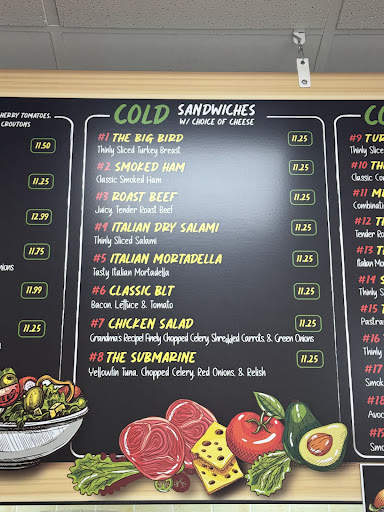 HERRY TOMATOES,
CROUTONS
11.50
11.25
12.99
11.75
nions
11.99
11.25
COLD SANDWICHES
W/ CHOICE OF CHEESE
#1 THE BIG BIRD 11.25
Thinly Sliced Turkey Breast
#2 SMOKED HAM 11.25
Classic Smoked Ham
#3 ROAST BEEF 11.25
Juicy, Tender Roast Beef
#4 ITALIAN DRY SALAMI 11.25
Thinly Sliced Salami
#5 ITALIAN MORTADELLA 11.25
Tasty Italian Mortadella
#6 CLASSIC BLT 11.25
Bacon, Lettuce & Tomato
#7 CHICKEN SALAD 11.25
Grandma's Recipe! Finely Chopped Celery, Shredded Carrots, & Green Onions
#8 THE SUBMARINE 11.25
Yellowfin Tuna, Chopped Celery, Red Onions, & Relish
CO
#9 TUR
Thinly Slic
#10 TH
Classic Co
#11 M
Combinati
#12 T
Tender Ro
#13 T
Italian Mo
#14 S
Thinly S
#15 T
Pastra
#16 T
Thinly
#17
Smok
#18
Avoc
#19
Smo